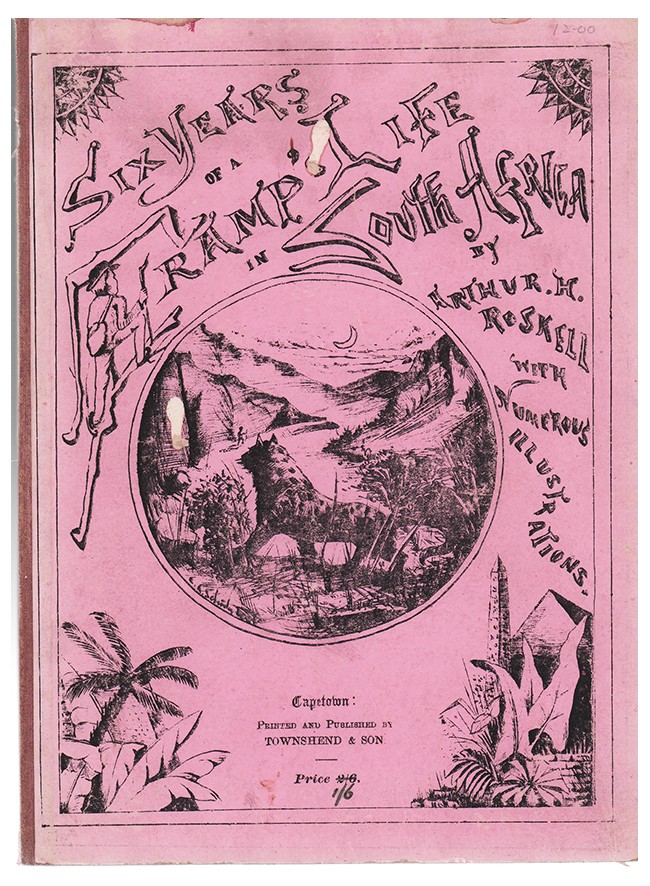 12-00
SIX YEARS
OF A
TRAMP LIFE
IN SOUTH AFRICA
BY
ARTHUR. H.
ROSKELL
WITH
NUMEROUS
ILLUSTRATIONS.
Capetown:
PRINTED AND PUBLISHED BY
TOWNSHEND & SON
Price 2/6.
1/6